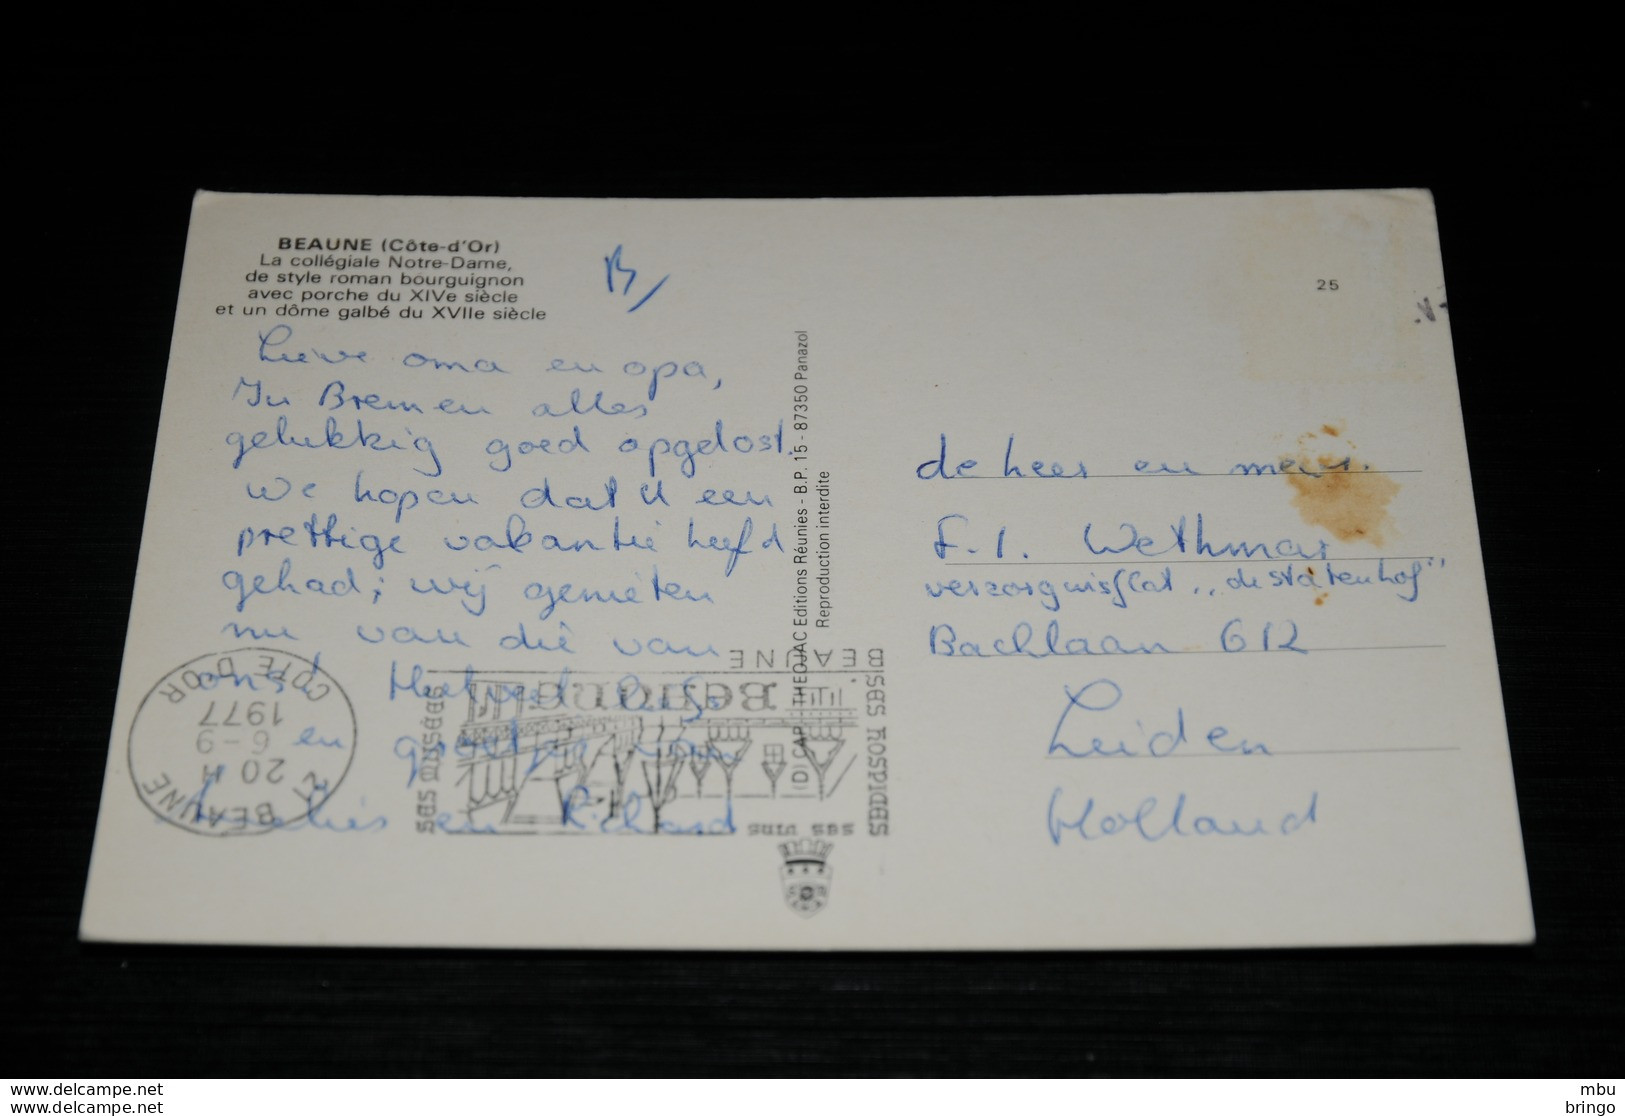 BEAUNE (Côte-d'Or)
La collégiale Notre-Dame,
de style roman bourguignon
avec porche du XIVe siècle
et un dôme galbé du XVIIe siècle
B/
25
Lieve oma en opa,
In Bremen alles
gelukkig goed opgelost.
We hopen dat U een
prettige vakantie heefd
gehad; wij genieten
nu van die van
ons! Hartel
en groetjes van
en Richard
CAP - THEOJAC Editions Réunies - B.P. 15 - 87350 Panazol
Reproduction interdite
de heer en mevr.
F. I. Wethmar
verzorgnisflat ,,de statenhof"
Bachlaan 612
Leiden
Holland
21 BEAUNE
20 H
6-9
1977
COTE D'OR
BEAUNE
Beaune
SES MUSÉES
SES HOSPICES
SES VINS
delcampe.net
delcampe.net
mbu
bringo